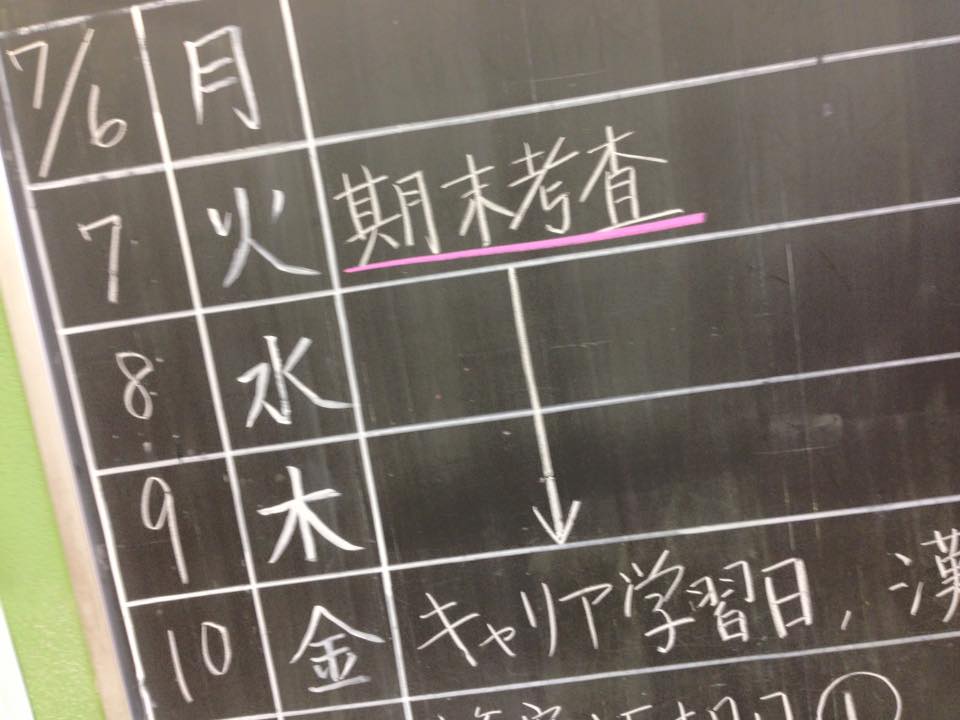 7/6 月
7 火 期末考査
8 水
9 木
10 金 キャリア学習日, 漢
①